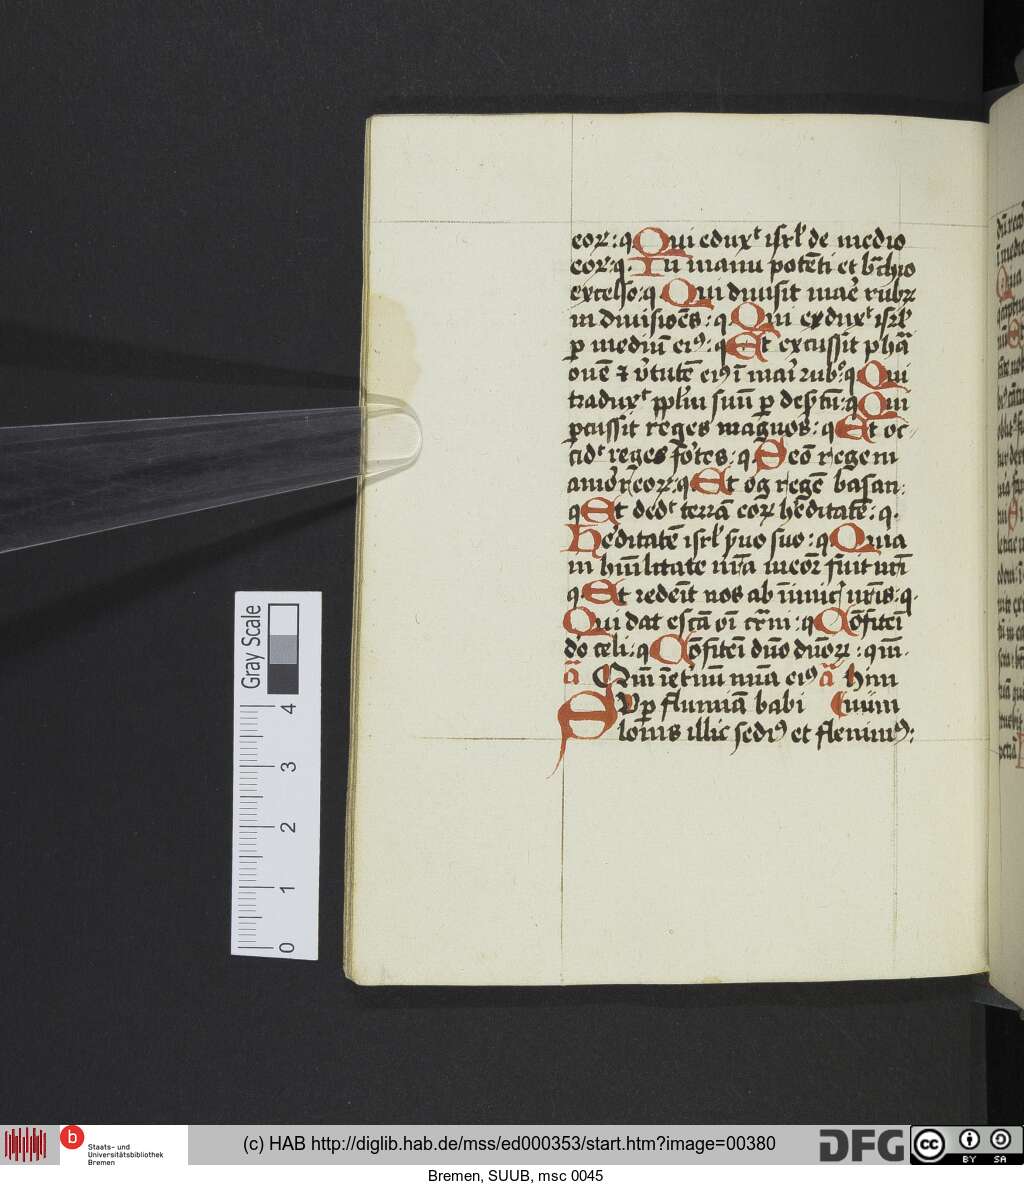 eoꝝ: q Qui eduxt isrl' de medio
eoꝝ: q. In manu potēti et b̄chio
excelso: q Qui diuisit mar̄ rubꝝ
in diuisiōēs: q. Qui exduxt isrl'
p mediū eiꝰ: q. Et excussit pha
oūe ⁊ v̄tutē eiꝰ ī mar̄ rub°: q Qui
traduxt ppl'm suū p des̄tū: q Qui
pcussit reges magnos: q Et oc
cidt reges fo'tes: q. Seō regem
amorreoꝝ: q Et og regē basan:
q Et dedt terrā eoꝝ h'editatē: q.
h'editatē isrl' ṡuo suo: q Quia
in hūilitate nr̄a meor̄ fuit nr̄i
q. Et redeīt nos ab īimic' nr̄is: q.
Qui dat escā oī cr̄ni: q Cōfiteī
do celi: q Cōfiteī dn̄o dn̄oꝝ: qm̄.
ā Qm̄ īet'nū mīa eiꝰ ā him
SVp flumīa babi Cuim
lonis illic sedīꝰ et fleuimꝰ:
Gray Scale
0 1 2 3 4
b
Staats- und
Universitätsbibliothek
Bremen
(c) HAB http://diglib.hab.de/mss/ed000353/start.htm?image=00380
DFG
cc BY SA
Bremen, SUUB, msc 0045